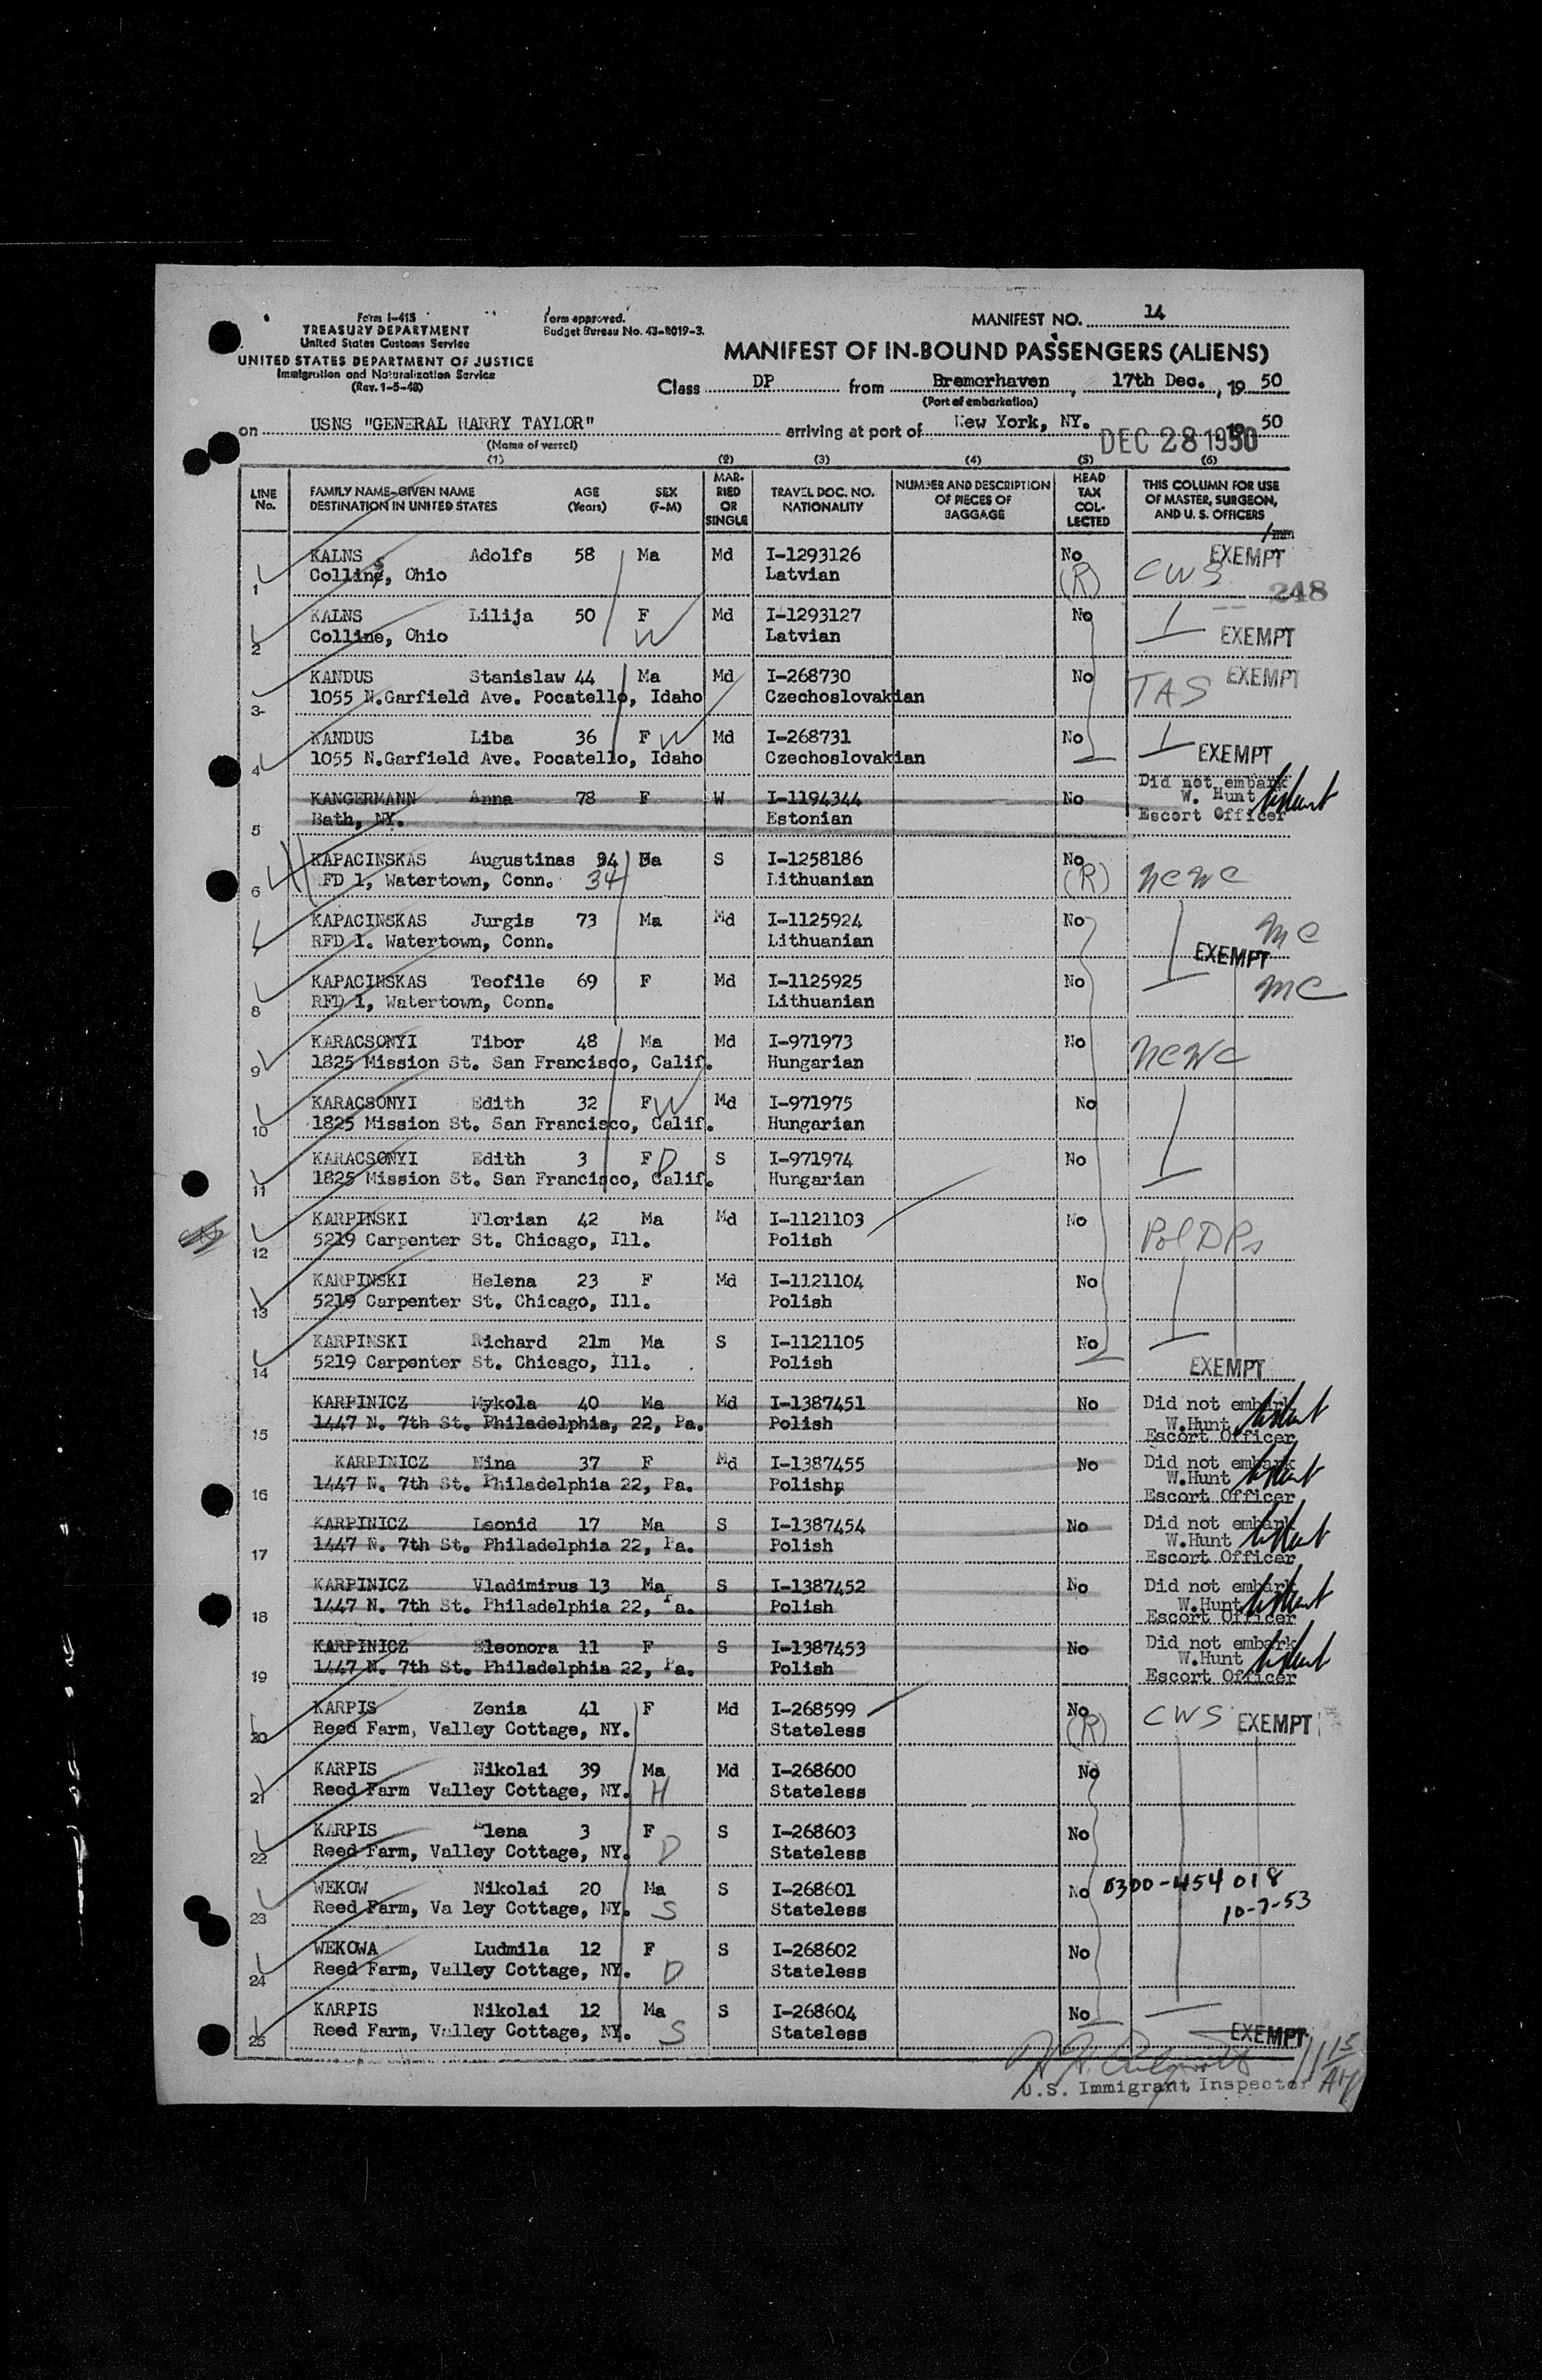 Form I-415
TREASURY DEPARTMENT
United States Customs Service
UNITED STATES DEPARTMENT OF JUSTICE
Immigration and Naturalization Service
(Rev. 1-5-48)
Form approved.
Budget Bureau No. 43-R019-3.
MANIFEST NO. 14
MANIFEST OF IN-BOUND PASSENGERS (ALIENS)
Class DP from Bremerhaven, 17th Dec., 19 50
(Port of embarkation)
on USNS "GENERAL HARRY TAYLOR" arriving at port of New York, NY. 19 50
DEC 28 1950
(Name of vessel)
(1) (2) (3) (4) (5) (6)
LINE No. FAMILY NAME-GIVEN NAME DESTINATION IN UNITED STATES AGE (Years) SEX (F-M) MARRIED OR SINGLE TRAVEL DOC. NO. NATIONALITY NUMBER AND DESCRIPTION OF PIECES OF BAGGAGE HEAD TAX COLLECTED THIS COLUMN FOR USE OF MASTER, SURGEON, AND U. S. OFFICERS
KALNS Adolfs 58 Ma Md I-1293126 No EXEMPT
1 Collins, Ohio Latvian (R) CWS 248
KALNS Lilija 50 F Md I-1293127 No
2 Colline, Ohio W Latvian EXEMPT
KANDUS Stanislaw 44 Ma Md I-268730 No EXEMPT
3 1055 N.Garfield Ave. Pocatello, Idaho Czechoslovakian TAS
KANDUS Liba 36 F W Md I-268731 No
4 1055 N.Garfield Ave. Pocatello, Idaho Czechoslovakian EXEMPT
KANGERMANN Anna 78 F W I-1194344 No Did not embark
W. Hunt
5 Bath, NY. Estonian Escort Officer
KAPACINSKAS Augustinas 34 Ma S I-1258186 No
6 RFD 1, Watertown, Conn. 34 Lithuanian (R) NCWC
KAPACINSKAS Jurgis 73 Ma Md I-1125924 No MC
7 RFD 1. Watertown, Conn. Lithuanian EXEMPT
KAPACINSKAS Teofile 69 F Md I-1125925 No MC
8 RFD 1, Watertown, Conn. Lithuanian
KARACSONYI Tibor 48 Ma Md I-971973 No
9 1825 Mission St. San Francisco, Calif. Hungarian NCWC
KARACSONYI Edith 32 F W Md I-971975 No
10 1825 Mission St. San Francisco, Calif. Hungarian
KARACSONYI Edith 3 F D S I-971974 No
11 1825 Mission St. San Francisco, Calif. Hungarian
KARPINSKI Florian 42 Ma Md I-1121103 No
12 5219 Carpenter St. Chicago, Ill. Polish Pol DPs
KARPINSKI Helena 23 F Md I-1121104 No
13 5219 Carpenter St. Chicago, Ill. Polish
KARPINSKI Richard 21m Ma S I-1121105 No
14 5219 Carpenter St. Chicago, Ill. Polish EXEMPT
KARPINICZ Mykola 40 Ma Md I-1387451 No Did not embark
W.Hunt
15 1447 N. 7th St. Philadelphia, 22, Pa. Polish Escort Officer
KARPINICZ Nina 37 F Md I-1387455 No Did not embark
W.Hunt
16 1447 N. 7th St. Philadelphia 22, Pa. Polish Escort Officer
KARPINICZ Leonid 17 Ma S I-1387454 No Did not embark
W.Hunt
17 1447 N. 7th St. Philadelphia 22, Pa. Polish Escort Officer
KARPINICZ Vladimirus 13 Ma S I-1387452 No Did not embark
W.Hunt
18 1447 N. 7th St. Philadelphia 22, Pa. Polish Escort Officer
KARPINICZ Eleonora 11 F S I-1387453 No Did not embark
W.Hunt
19 1447 N. 7th St. Philadelphia 22, Pa. Polish Escort Officer
KARPIS Zenia 41 F Md I-268599 No CWS EXEMPT
20 Reed Farm, Valley Cottage, NY. Stateless (R)
KARPIS Nikolai 39 Ma Md I-268600 No
21 Reed Farm Valley Cottage, NY. H Stateless
KARPIS Elena 3 F S I-268603 No
22 Reed Farm, Valley Cottage, NY. D Stateless
WEKOW Nikolai 20 Ma S I-268601 No 0300-454018
23 Reed Farm, Va ley Cottage, NY. S Stateless 10-7-53
WEKOWA Ludmila 12 F S I-268602 No
24 Reed Farm, Valley Cottage, NY. D Stateless
KARPIS Nikolai 12 Ma S I-268604 No
25 Reed Farm, Valley Cottage, NY. S Stateless EXEMPT
U.S. Immigrant Inspector